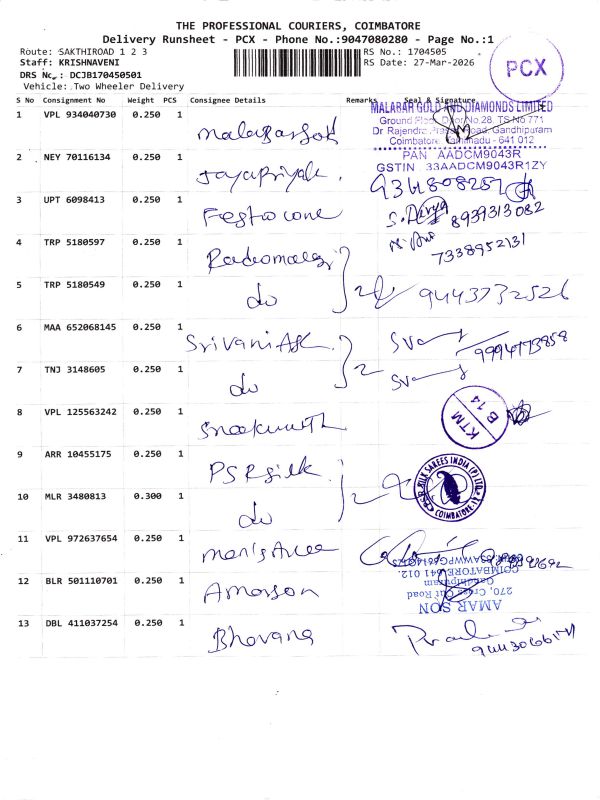 THE PROFESSIONAL COURIERS, COIMBATORE
Delivery Runsheet - PCX - Phone No.:9047080280 - Page No.:1
Route: SAKTHIROAD 1 2 3
RS No.: 1704505
Staff: KRISHNAVENI
RS Date: 27-Mar-2026
PCX
DRS No.: DCJB170450501
Vehicle: Two Wheeler Delivery
S No Consignment No Weight PCS Consignee Details Remarks Seal & Signature
MALABAR GOLD AND DIAMONDS LIMITED
1 VPL 934040730 0.250 1
Ground Floor, Door No.28, TS No 771
Dr Rajendra Road, Gandhipuram
Coimbatore, Tamilnadu - 641 012
PAN AADCM9043R
GSTIN 33AADCM9043R1ZY
2 NEY 70116134 0.250 1 Jayapriya
3 UPT 6098413 0.250 1 8939313082
4 TRP 5180597 0.250 1 7338952131
5 TRP 5180549 0.250 1 do 2 9443732526
6 MAA 652068145 0.250 1
7 TNJ 3148605 0.250 1 do 2
8 VPL 125563242 0.250 1 KTM B 14
9 ARR 10455175 0.250 1 PSR silk
SILK SAREES INDIA (P) LTD
COIMBATORE
10 MLR 3480813 0.300 1 do 2
11 VPL 972637654 0.250 1
12 BLR 501110701 0.250 1
AMAR SON
270, Cross Cut Road
Gandhipuram
COIMBATORE - 641 012.
13 DBL 411037254 0.250 1 Bhavana